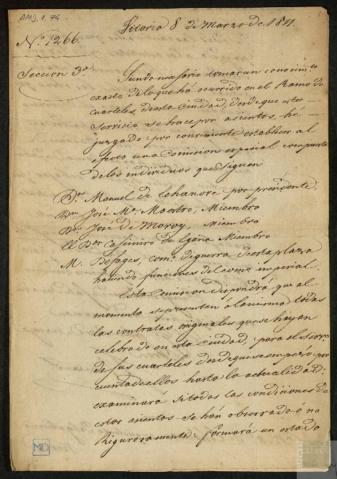 Vitoria 8 de Marzo de 1811.
Nº 1266.
Seccion 3ª
Siendo necesario tomar un conocimiento
exacto de lo que há ocurrido en el Ramo de
cuarteles de esta Ciudad desde que este
Servicio se hace por asientos, he
juzgado por conveniente establecer al
efecto una comision especial compuesta
de los individuos que siguen
Dn. Manuel de por presidente
Dn. José Mª Maestro, Miembro
Dn. José de Miembro
Casimiro de Egaña Miembro
M. comº de guerra de esta plaza
haciendo funciones de imperial
Esta comision dispondrá que al
momento se presenten á la misma todas
las contratas originales que se hayan
celebrado en esta ciudad, para el servicio
de sus cuarteles desde que se empezó por
cuenta de ellos hasta la actualidad:
examinará si todas las condiciones de
estos asientos se hán observado ó no
Rigurosamente: formará un estado